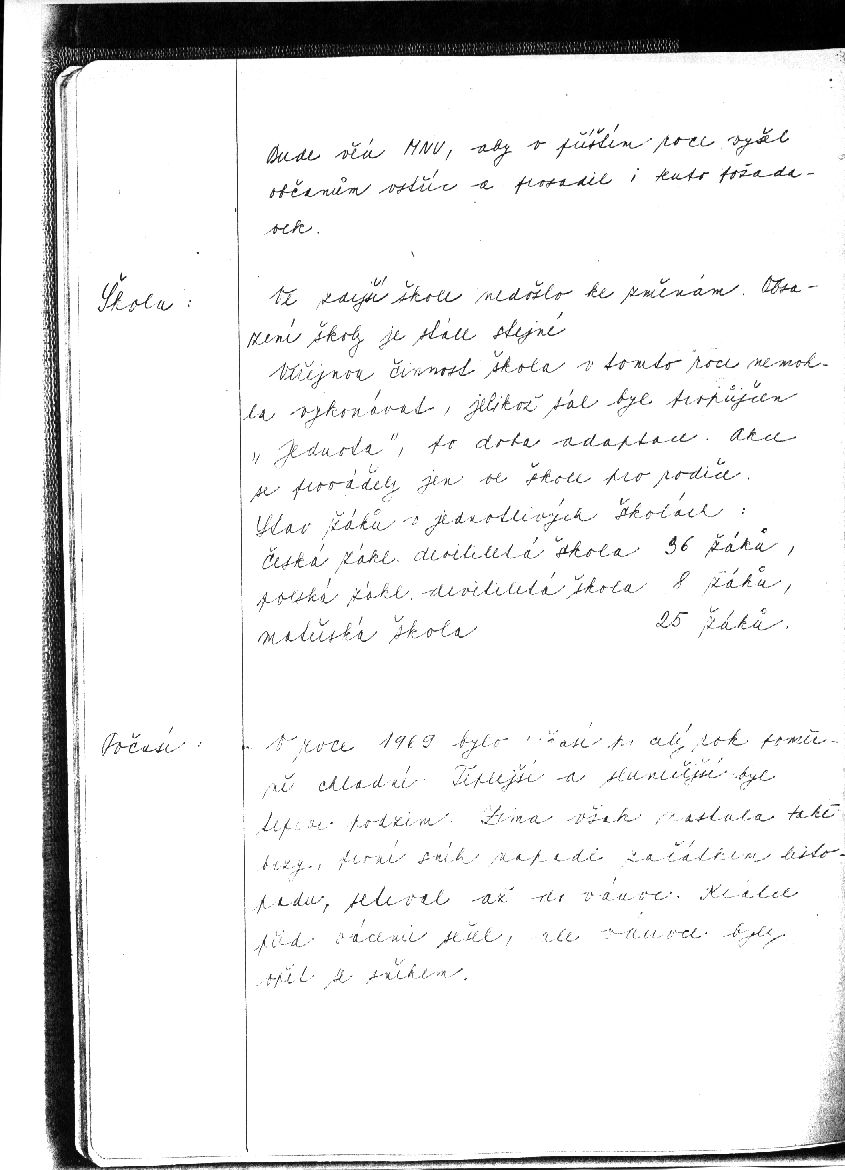 Bude věcí MNV, aby v příštím roce vyšel
občanům vstříc a prosadil i tento požada-
vek.
Škola :
Ve zdejší škole nedošlo ke změnám. Obsa-
zení školy je stále stejné
Veřejnou činnost škola v tomto roce nemoh-
la vykonávat, jelikož sál byl propůjčen
„Jednota", po dobu adaptace. Akce
se prováděly jen ve škole pro rodiče.
Stav žáků v jednotlivých školách :
česká zákl. devítiletá škola 36 žáků,
polská zákl. devítiletá škola 8 žáků,
mateřská škola 25 žáků.
Počasí :
V roce 1969 bylo počasí po celý rok poměr-
ně chladné. Teplejší a slunečnější byl
teprve podzim. Zima však nastala také
brzy, první sníh napadl začátkem listo-
padu, setrval až do vánoc. Krátce
před vánocemi sešel, ale vánoce byly
opět se sněhem.